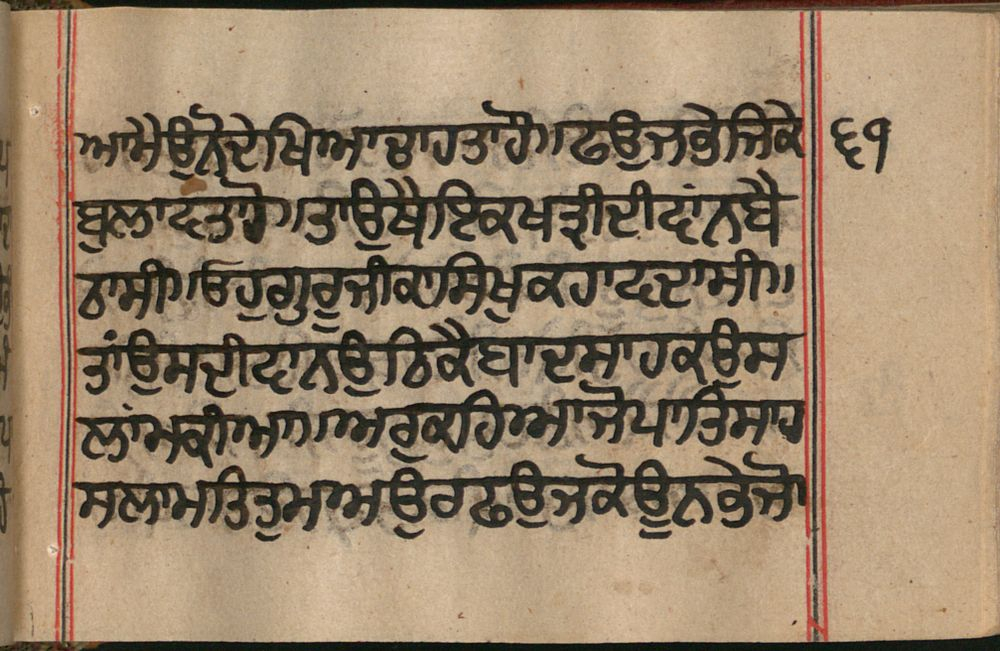 ਆਮੈ ਉਨੋ ਦੇਖਿਆ ਚਾਹਤਾ ਹੌ॥ ਫਉਜ ਭੇਜਿ ਕੇ ੬੧
ਬੁਲਾਵਤਾ ਹੌ॥ ਤਾ ਉਥੈ ਇਕ ਖਤ੍ਰੀ ਦੀਵਾਂਨ ਬੈ
ਠਾ ਸੀ॥ ਓਹੁ ਗੁਰੂ ਜੀ ਕਾ ਸਿਖੁ ਕਹਾਵਦਾ ਸੀ॥
ਤਾਂ ਉਸ ਦੀਵਾਨ ਉਠਿ ਕੈ ਬਾਦਸਾਹ ਕਉ ਸ
ਲਾਂਮ ਕੀਆ॥ ਅਰੁ ਕਹਿਆ ਜੋ ਪਾਤਿਸਾਹ
ਸਲਾਮਤਿ ਤੁਮ ਅਉਰ ਫਉਜ ਕੋ ਊਨ ਭੇਜੋ